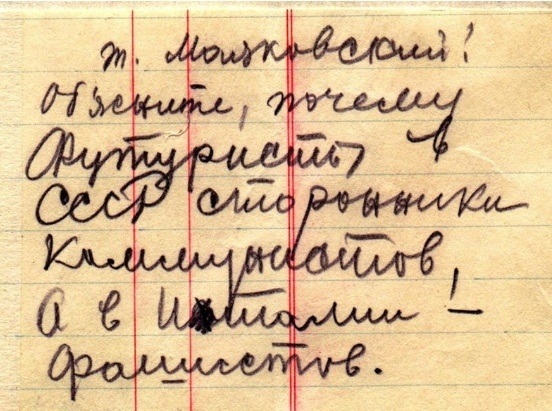 т. Маяковский!
Обясните, почему
Футуристы в
СССР сторонники
Коммунистов,
А в Италии! –
Фашистов.